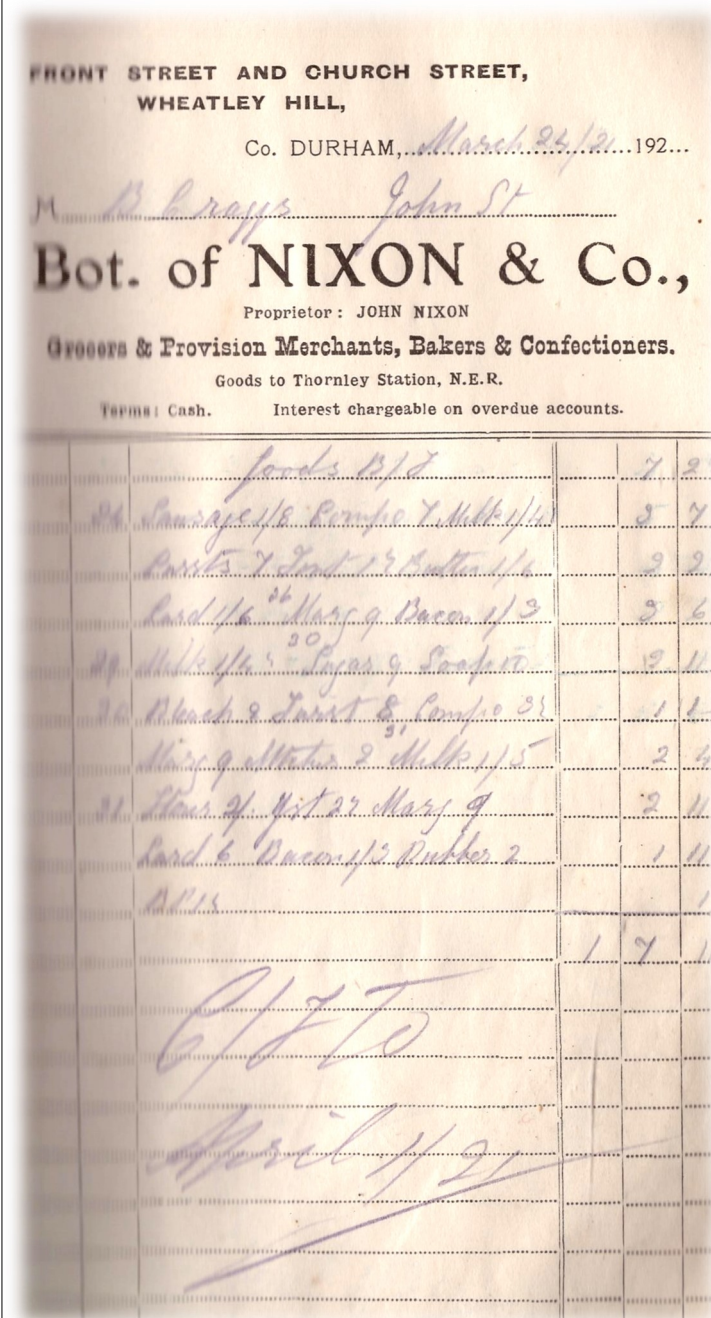 FRONT STREET AND CHURCH STREET,
WHEATLEY HILL,
Co. DURHAM, March 24/21 192...
M B Craggs John St
Bot. of NIXON & Co.,
Proprietor: JOHN NIXON
Grocers & Provision Merchants, Bakers & Confectioners.
Goods to Thornley Station, N.E.R.
Terms: Cash. Interest chargeable on overdue accounts.
Goods B/F 7 2
Sausage 1/8 Compo 7 Milk 1/4 7
7 Butter 1/6 2 2
Lard 1/6 26 Marg 9 Bacon 1/3 3 6
29 Milk 30 Sugar 9 Soap 2 11
30 Bleach 2 8 Compo 1
Marg 9 2 31 Milk 1/5 2 4
31 Flour 2/- Yst Marg 9 2 11
Lard 6 Bacon 1/3 Rubber 2 1 11
1
1 7 1
C/F To
April 1/21